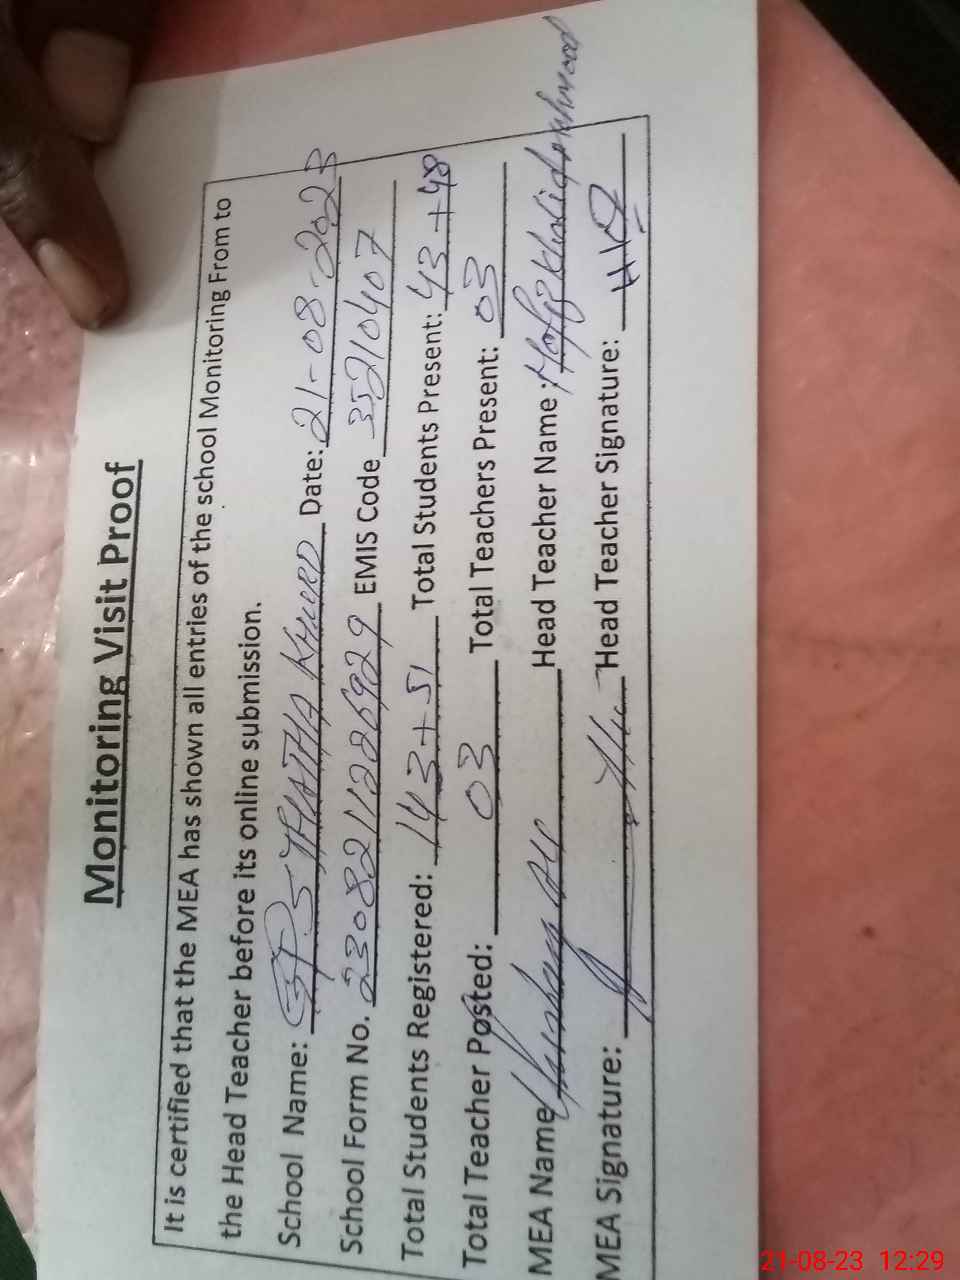 Monitoring Visit Proof
It is certified that the MEA has shown all entries of the school Monitoring From to
the Head Teacher before its online submission.
School Name: GPS THATHA KHURD Date: 21-08-2023
School Form No. 2308211286929 EMIS Code 35210407
Total Students Registered: 143+51 Total Students Present: 43+48
Total Teacher Posted: 03 Total Teachers Present: 03
MEA Name Ali Head Teacher Name: Hafiz Khalid mahmood
MEA Signature: Head Teacher Signature:
21-08-23 12:29